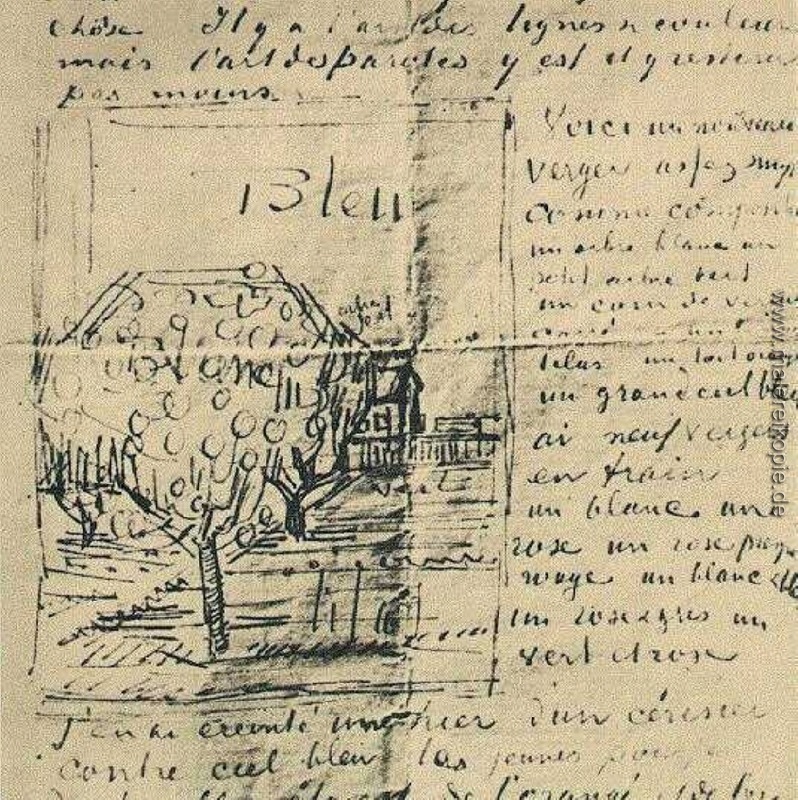 chose Il y a l'art des lignes & couleurs
mais l'art des paroles y est et y restera
pas moins.
Bleu
blanc
vert
Voici un nouveau
verger assez simple
comme composition
un arbre blanc un
petit arbre vert
un coin de verdure
lilas un toit orangé
un grand ciel bleu
ai neuf vergers
en train
un blanc un
rose un rose presque
rouge un blanc et bleu
un rose & gris un
vert et rose
J'en ai éreinté un hier d'un cérisier
contre ciel bleu les jeunes pousses
de l'orangé et de l'or
www.malereikopie.de